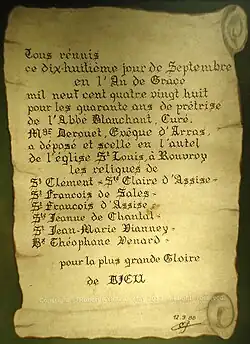 Tous réunis
ce dix-huitième jour de Septembre
en l'An de Grâce
mil neuf cent quatre vingt huit
pour les quarante ans de prêtrise
de l'Abbé Blanchant, Curé.
Mgr Derouet, Evêque d'Arras,
a déposé et scellé en l'autel
de l'église St Louis, à Rouvroy
les reliques de
St Clément - Ste Claire d'Assise -
St Francois de Sales -
St Francois d'Assise -
Ste Jeanne de Chantal -
St Jean-Marie Vianney -
Bx Théophane Venard -
pour la plus grande Gloire
de DIEU
12.9.88